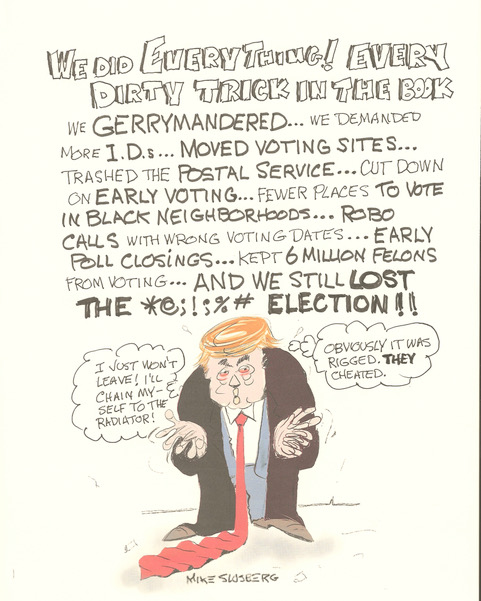 WE DID EVERYTHING! EVERY
DIRTY TRICK IN THE BOOK
WE GERRYMANDERED... WE DEMANDED
MORE I.D.s... MOVED VOTING SITES...
TRASHED THE POSTAL SERVICE... CUT DOWN
ON EARLY VOTING... FEWER PLACES TO VOTE
IN BLACK NEIGHBORHOODS... ROBO
CALLS WITH WRONG VOTING DATES... EARLY
POLL CLOSINGS... KEPT 6 MILLION FELONS
FROM VOTING... AND WE STILL LOST
THE *@;!;%# ELECTION!!
I JUST WON'T
LEAVE! I'LL
CHAIN MY-
SELF TO THE
RADIATOR!
OBVIOUSLY IT WAS
RIGGED. THEY
CHEATED.
MIKE